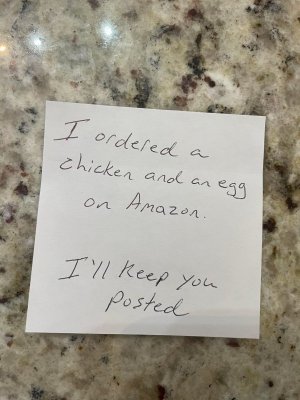 I ordered a
chicken and an egg
on Amazon.
I'll keep you
posted